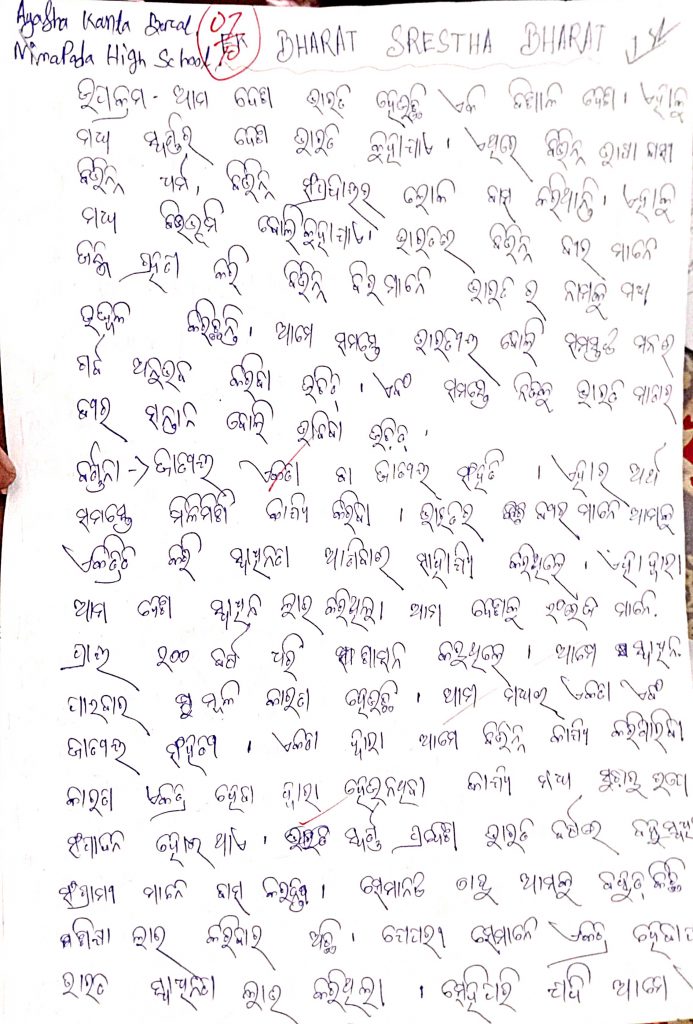 Ayasha Kanta Baral
Nimapada High School,
07
EK BHARAT SRESTHA BHARAT
ଉପକ୍ରମ - ଆମ ଦେଶ ଭାରତ ହେଉଛି ଏକ ବିଶାଳ ଦେଶ । ଏହାକୁ
ମଧ୍ୟ ଦେଶ ଭାରତ କୁହାଯାଏ । ଏଥିରେ ବିଭିନ୍ନ ଭାଷା
ବିଭିନ୍ନ ଧର୍ମ, ବିଭିନ୍ନ ସଂପ୍ରଦାୟର ଲୋକ ବାସ କରିଥାନ୍ତି । ଏହାକୁ
ମଧ୍ୟ ବୀରଭୂମି ବୋଲି କୁହାଯାଏ । ଭାରତରେ ବିଭିନ୍ନ ବୀର ମାନେ
ଜନ୍ମ ଗ୍ରହଣ କରି ବିଭିନ୍ନ ବିର ମାନେ ଭାରତ ର ନାମକୁ ମଧ୍ୟ
ଉଜ୍ଜ୍ୱଳ କରିଛନ୍ତି । ଆମେ ସମସ୍ତେ ଭାରତୀୟ ବୋଲି ସମସ୍ତଙ୍କ ମନରେ
ଗର୍ବ ଅନୁଭବ କରିବା ଉଚିତ୍ । ଏବଂ ସମସ୍ତେ ନିଜକୁ ଭାରତ ମାତାର
ବୀର ସନ୍ତାନ ବୋଲି ଭାବିବା ଉଚିତ୍ ।
ବର୍ଣ୍ଣନା -> ଜାତୀୟ ଏକତା ବା ଜାତୀୟ ସଂହତି । ଏହାର ଅର୍ଥ
ସମସ୍ତେ ମିଳିମିଶି କାର୍ଯ୍ୟ କରିବା । ଭାରତର ବୀର ମାନେ ଆମକୁ
ଏକତ୍ରିତ କରି ସ୍ୱାଧିନତା ଆଣିବାରେ ସାହାଯ୍ୟ କରିଥିଲେ । ଏହା ଦ୍ୱାରା
ଆମ ଦେଶ ସ୍ୱାଧିନ ଲାଭ କରିଥିଲା । ଆମ ଦେଶକୁ ଇଂରେଜ ମାନେ
ପ୍ରାୟ ୨୦୦ ବର୍ଷ ଧରି ଶାସନ କରୁଥିଲେ । ଆମେ ସ୍ୱାଧିନ
ପାଇବାର ମୂଳ କାରଣ ହେଉଛି । ଆମ ମଧ୍ୟରେ ଏକତା ଏବଂ
ଜାତୀୟ ସଂହତି । ଏକତା ଦ୍ୱାରା ଆମେ ବିଭିନ୍ନ କାର୍ଯ୍ୟ କରିପାରିବା
କାରଣ ଏକତ୍ର ହେବା ଦ୍ୱାରା ହେଉନଥିବା କାର୍ଯ୍ୟ ମଧ୍ୟ ସୁଚାରୁ ରୂପେ
ସଂପାଦନ ହୋଇ ଥାଏ । ଭାରତ ଭାରତ ବର୍ଷରେ
ସଂଗ୍ରାମୀ ମାନେ ବାସ କରୁଥିଲେ । ସେମାନଙ୍କ ଠାରୁ ଆମକୁ ବହୁତ୍ କିଛି
ଶିକ୍ଷା ଲାଭ କରିବାର ଅଛି । ସେମାନେ ଏକତ୍ର ହେବାରୁ
ଭାରତ ସ୍ୱାଧିନତା ଲାଭ କରିଥିଲା । ସେହିପରି ଯଦି ଆମେ